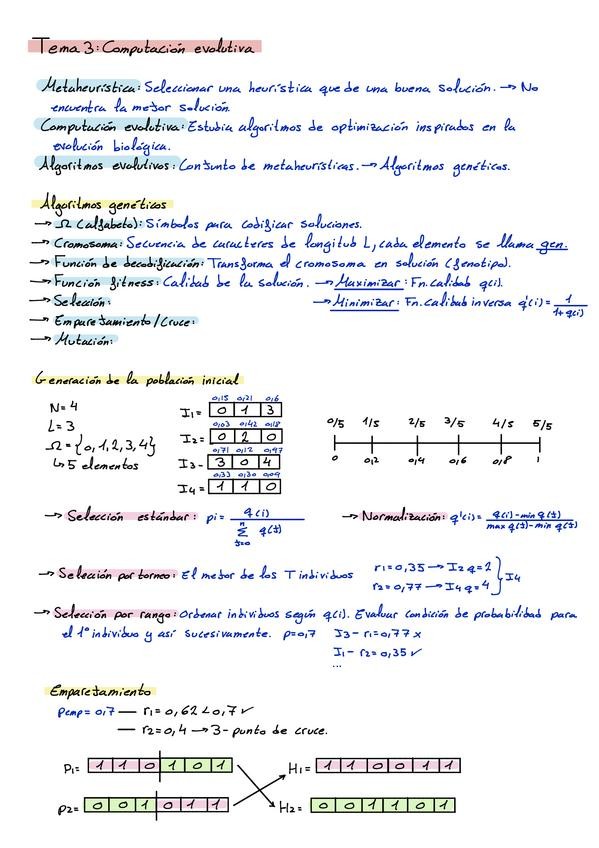 Tema 3: Computación evolutiva
Metaheurística: Seleccionar una heurística que de una buena solución. → No
encuentra la mejor solución.
Computación evolutiva: Estudia algoritmos de optimización inspirados en la
evolución biológica.
Algoritmos evolutivos: Conjunto de metaheurísticas. → Algoritmos genéticos.
Algoritmos genéticos
→ Ω (alfabeto): Símbolos para codificar soluciones.
→ Cromosoma: Secuencia de caracteres de longitud L, cada elemento se llama gen.
→ Función de decodificación: Transforma el cromosoma en solución (fenotipo).
→ Función fitness: Calidad de la solución. → Maximizar: Fn. calidad q(i).
→ Selección: → Minimizar: Fn. calidad inversa q'(i) = 1 / 1+q(i)
→ Emparejamiento/Cruce:
→ Mutación:
Generación de la población inicial
N = 4
L = 3
Ω = {0, 1, 2, 3, 4}
↳ 5 elementos
0,15 0,21 0,6
I1 = 0 1 3
0,03 0,42 0,18
I2 = 0 2 0
0,71 0,12 0,97
I3 = 3 0 4
0,33 0,30 0,09
I4 = 1 1 0
0/5 1/5 2/5 3/5 4/5 5/5
0 0,2 0,4 0,6 0,8 1
→ Selección estándar: pi = q(i) / n Σ j=0 q(j) → Normalización: q'(i) = q(i) - min q(j) / max q(j) - min q(j)
→ Selección por torneo: El mejor de los T individuos r1 = 0,35 → I2 q = 2
r2 = 0,77 → I4 q = 4 } I4
→ Selección por rango: Ordenar individuos según q(i). Evaluar condición de probabilidad para
el 1º individuo y así sucesivamente. p=0,7 I3 - r1 = 0,77 x
I1 - r2 = 0,35 ✓
...
Emparejamiento
pcmp = 0,7 — r1 = 0,62 < 0,7 ✓
— r2 = 0,4 → 3 - punto de cruce.
p1 = 1 1 0 1 0 1 H1 = 1 1 0 0 1 1
p2 = 0 0 1 0 1 1 H2 = 0 0 1 1 0 1